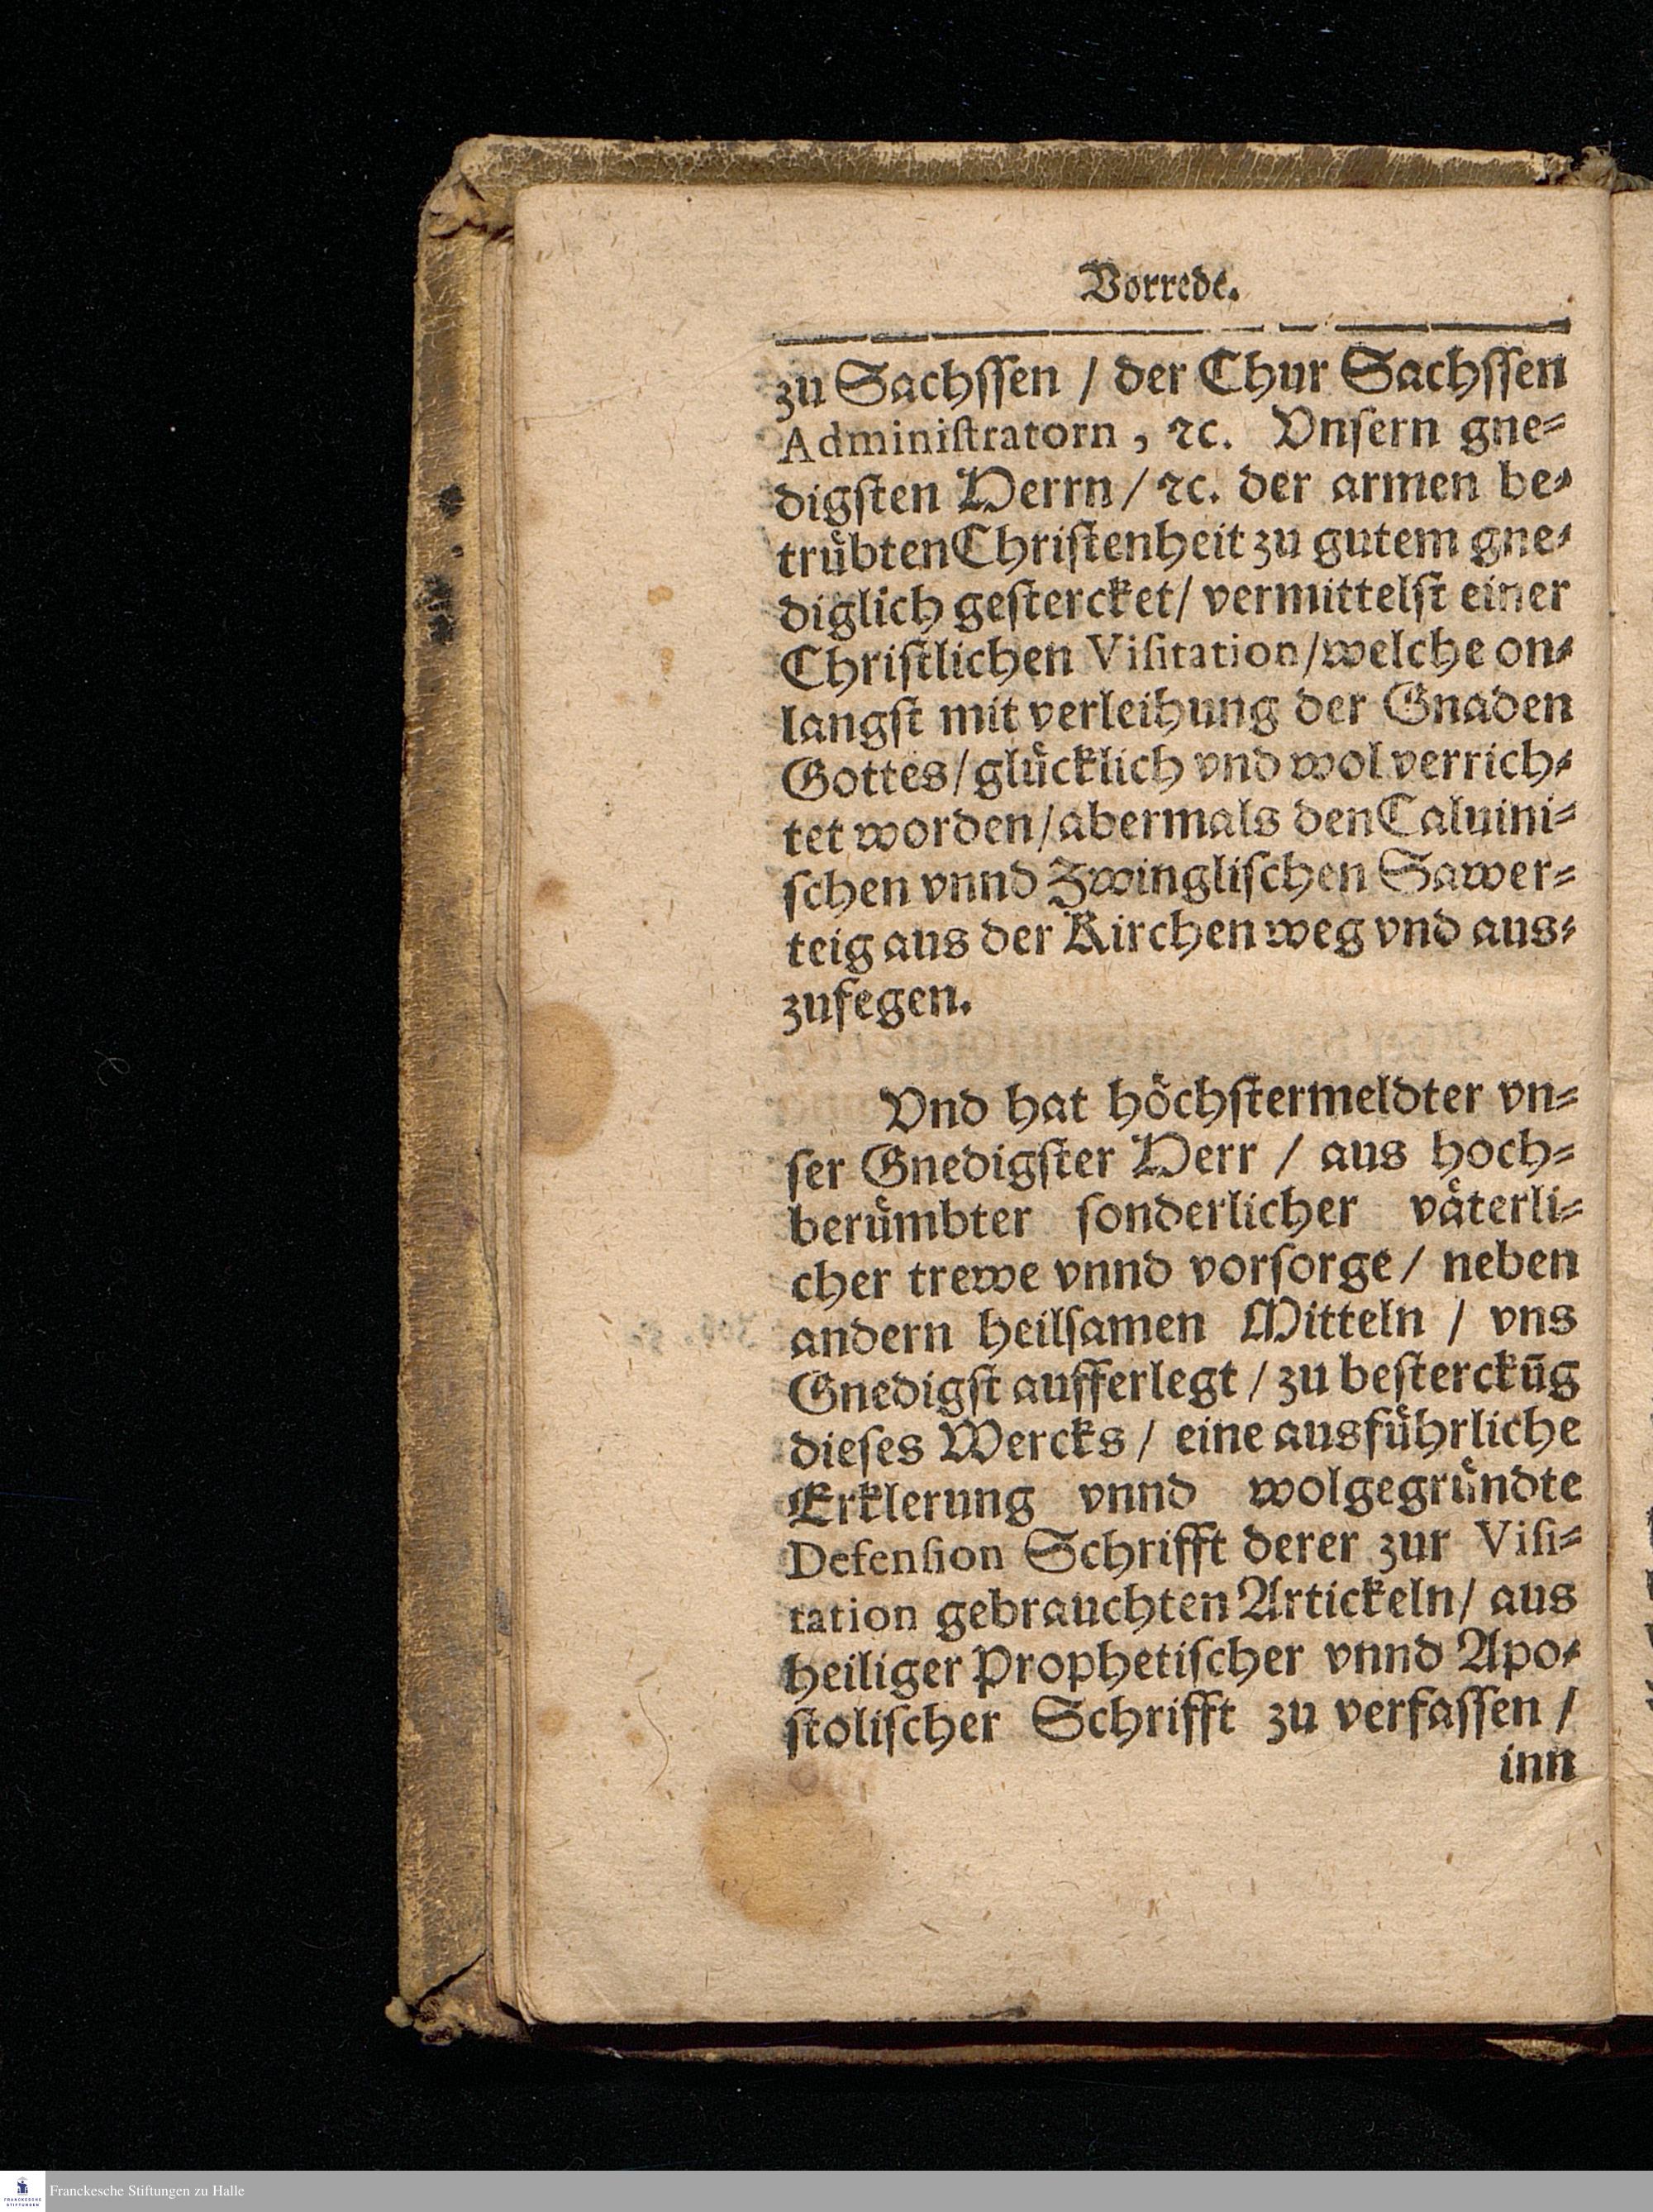 Vorrede.
zu Sachſſen / der Chur Sachſſen
Adminiſtratorn, ꝛc. Vnſern gne⸗
digſten Herrn / ꝛc. der armen be⸗
truͤbten Chriſtenheit zu gutem gne⸗
diglich geſtercket / vermittelſt einer
Chriſtlichen Viſitation / welche on⸗
langſt mit verleihung der Gnaden
Gottes / gluͤcklich vnd wol verrich⸗
tet worden / abermals den Caluini⸗
ſchen vnnd Zwingliſchen Sawer⸗
teig aus der Kirchen weg vnd aus⸗
zufegen.
Vnd hat hoͤchſtermeldter vn⸗
ſer Gnedigſter Herr / aus hoch⸗
beruͤmbter ſonderlicher vaͤterli⸗
cher trewe vnnd vorſorge / neben
andern heilſamen Mitteln / vns
Gnedigſt aufferlegt / zu beſterckūg
dieſes Wercks / eine ausfuͤhrliche
Erklerung vnnd wolgegruͤndte
Defenſion Schrifft derer zur Viſi⸗
tation gebrauchten Artickeln / aus
heiliger Prophetiſcher vnnd Apo⸗
ſtoliſcher Schrifft zu verfaſſen /
inn
FRANCKESCHE
STIFTUNGEN
Franckesche Stiftungen zu Halle